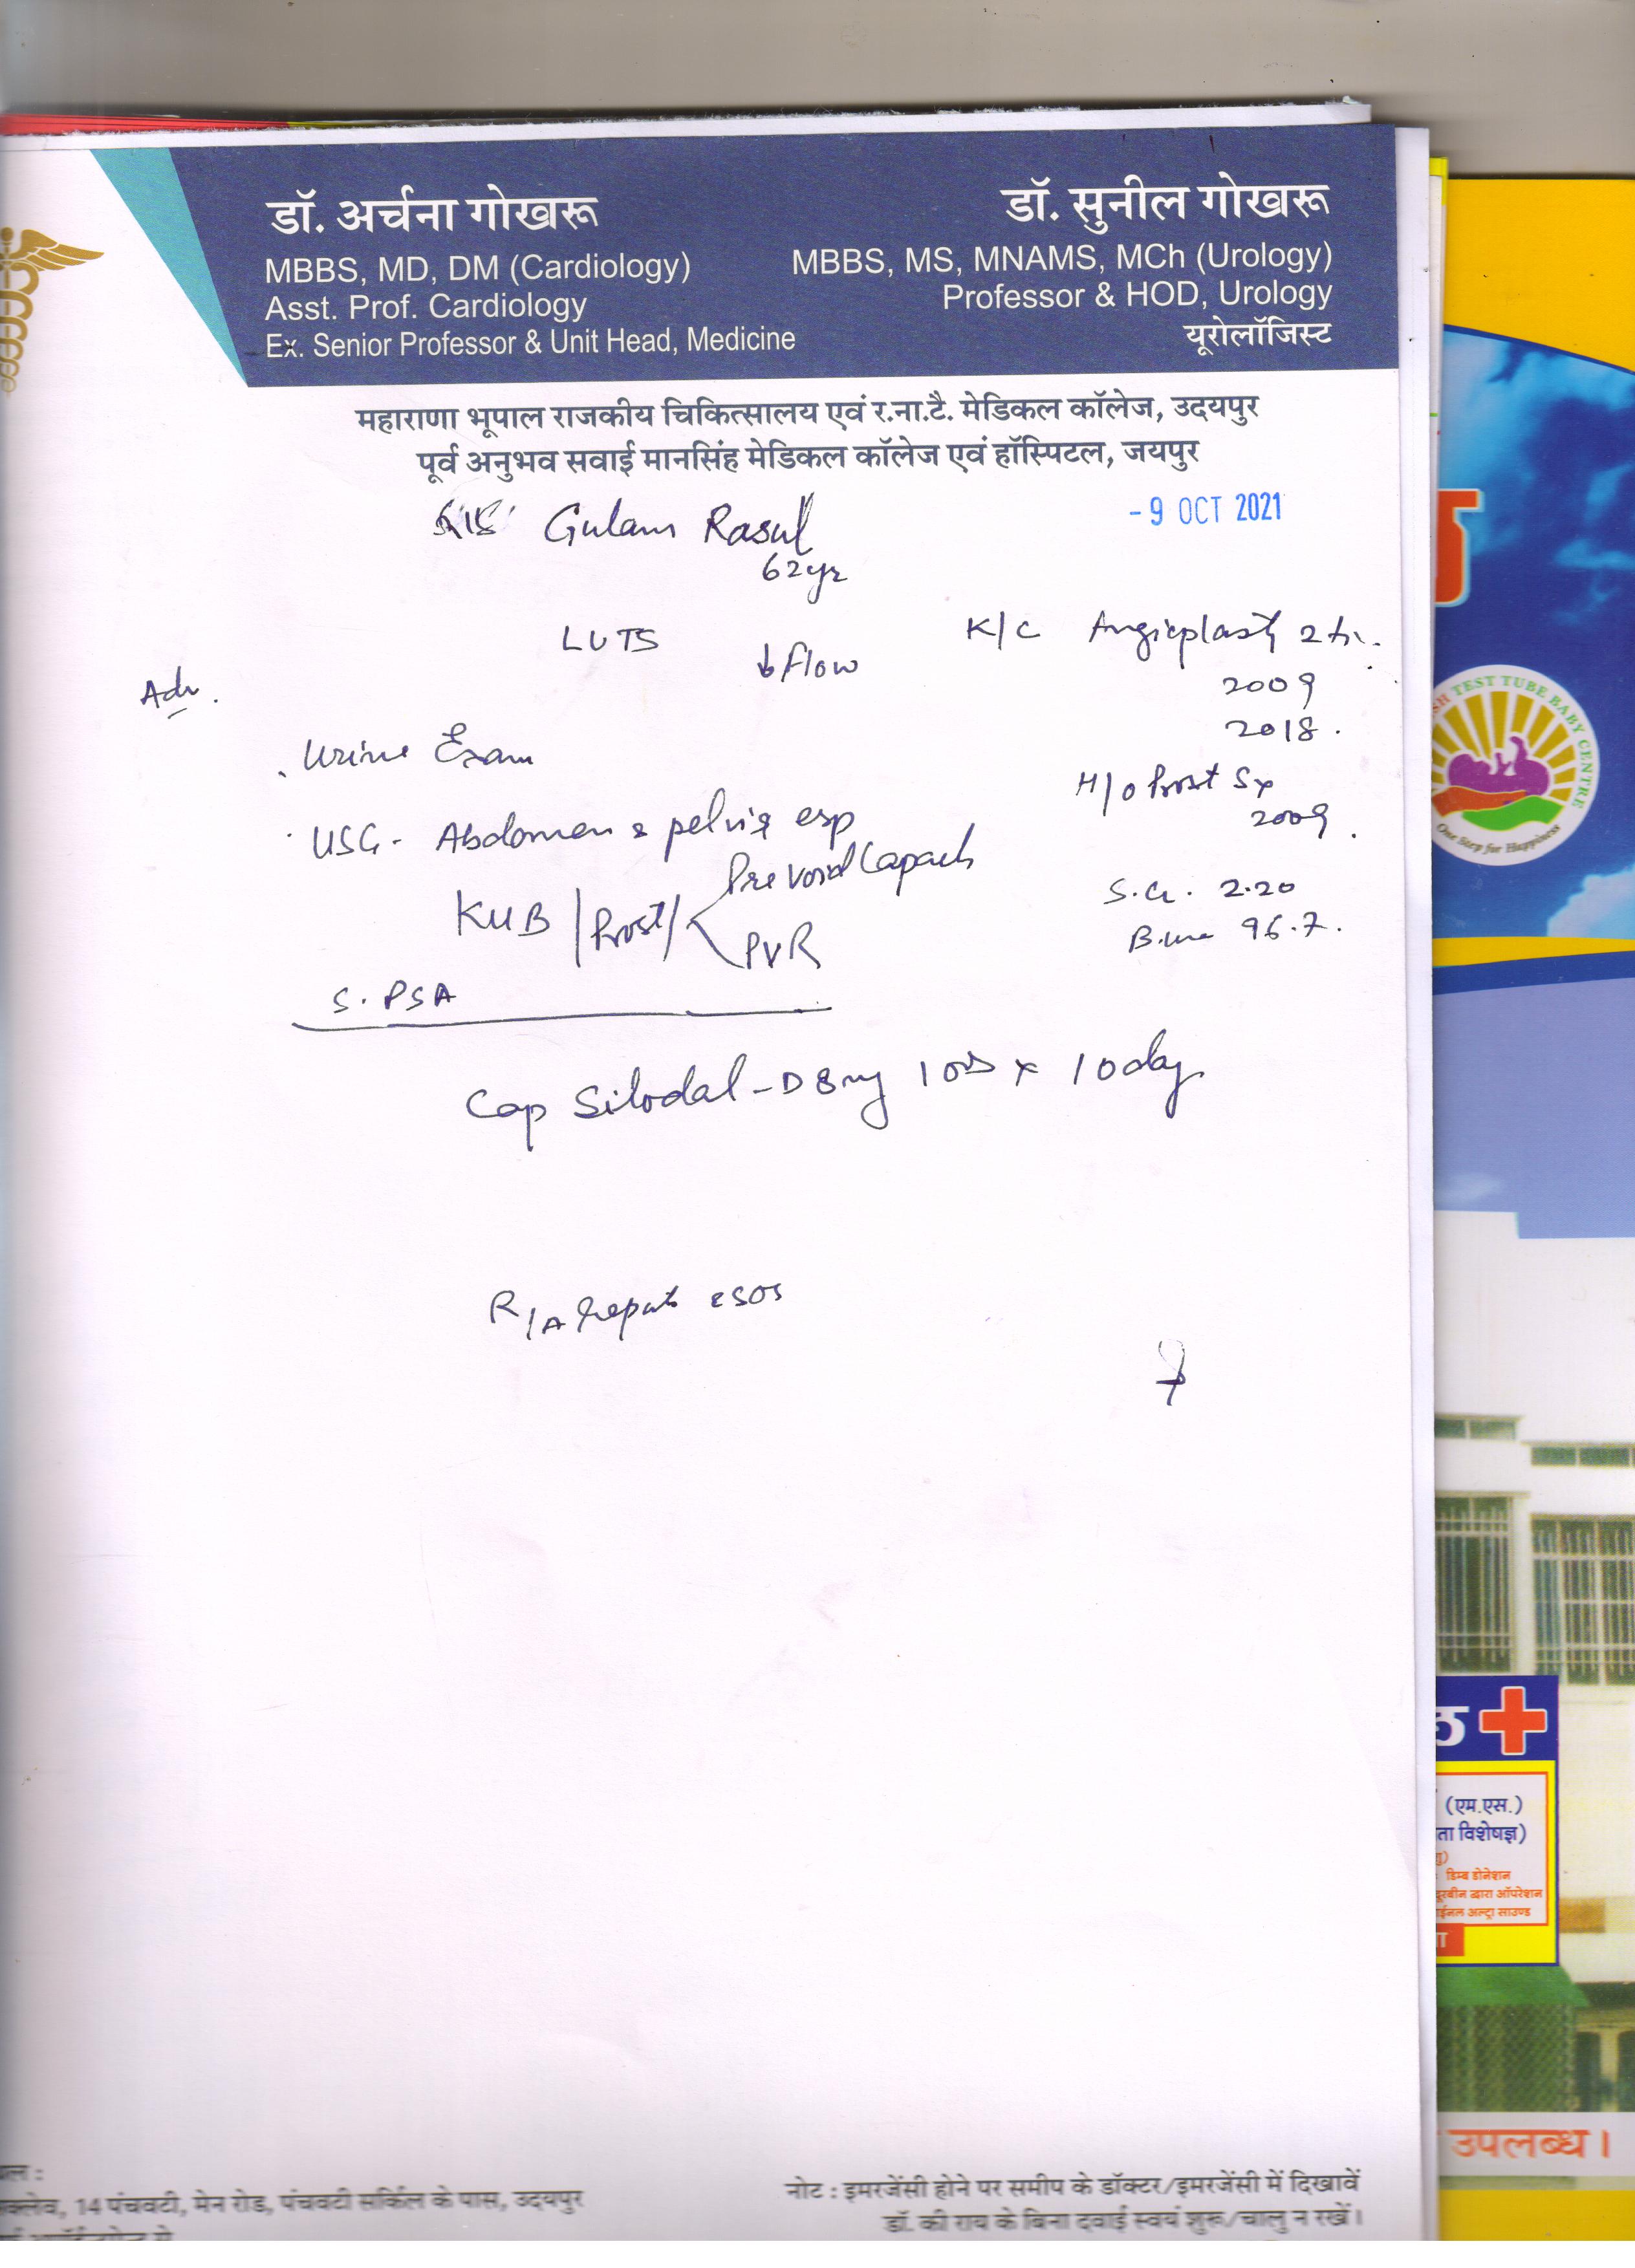 डॉ. अर्चना गोखरू
MBBS, MD, DM (Cardiology)
Asst. Prof. Cardiology
Ex. Senior Professor & Unit Head, Medicine
डॉ. सुनील गोखरू
MBBS, MS, MNAMS, MCh (Urology)
Professor & HOD, Urology
यूरोलॉजिस्ट
महाराणा भूपाल राजकीय चिकित्सालय एवं र.ना.टै. मेडिकल कॉलेज, उदयपुर
पूर्व अनुभव सवाई मानसिंह मेडिकल कॉलेज एवं हॉस्पिटल, जयपुर
Gulam Rasul
- 9 OCT 2021
62yr
LUTS
↓ flow
K/C Angioplasty
2009
2018.
Adv.
. Urine Exam
H/o Prost Sx
2009.
. USG - Abdomen & pelvis esp
KUB / Prost /
Pre void Capacity
PVR
S.Cr. 2.20
B.urea 96.7.
S. PSA
Cap Silodal-D 8mg 1 OD x 10 day
R/A reports
क्लेव, 14 पंचवटी, मेन रोड, पंचवटी सर्किल के पास, उदयपुर
नोट : इमरजेंसी होने पर समीप के डॉक्टर/इमरजेंसी में दिखावें
डॉ. की राय के बिना दवाई स्वयं शुरू/चालु न रखें।
TEST TUBE BABY CENTRE
One Step for Happiness
(एम.एस.)
ता विशेषज्ञ)
डिम्ब डोनेशन
दूरबीन द्वारा ऑपरेशन
अल्ट्रा साउण्ड
उपलब्ध।